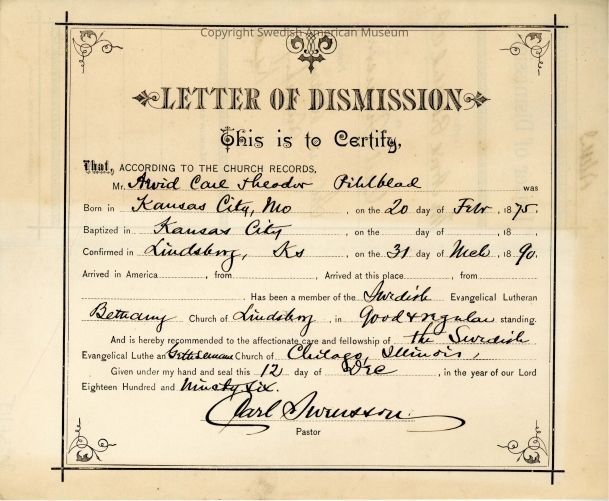 Copyright Swedish American Museum
LETTER OF DISMISSION
This is to Certify,
That, ACCORDING TO THE CHURCH RECORDS,
Mr. Arvid Carl Theodor Pihlblad was
Born in Kansas City, Mo, on the 20 day of Febr, 1875.
Baptized in Kansas City, on the day of , 18
Confirmed in Lindsborg, Ks, on the 31 day of Mch, 1890.
Arrived in America , from . Arrived at this place , from
Has been a member of the Swedish Evangelical Lutheran
Bethany Church of Lindsborg, in good & regular standing.
And is hereby recommended to the affectionate care and fellowship of the Swedish
Evangelical Lutheran Gethsemane Church of Chicago, Illinois,
Given under my hand and seal this 12 day of Dec, in the year of our Lord
Eighteen Hundred and Ninety six.
Carl Swensson.
Pastor